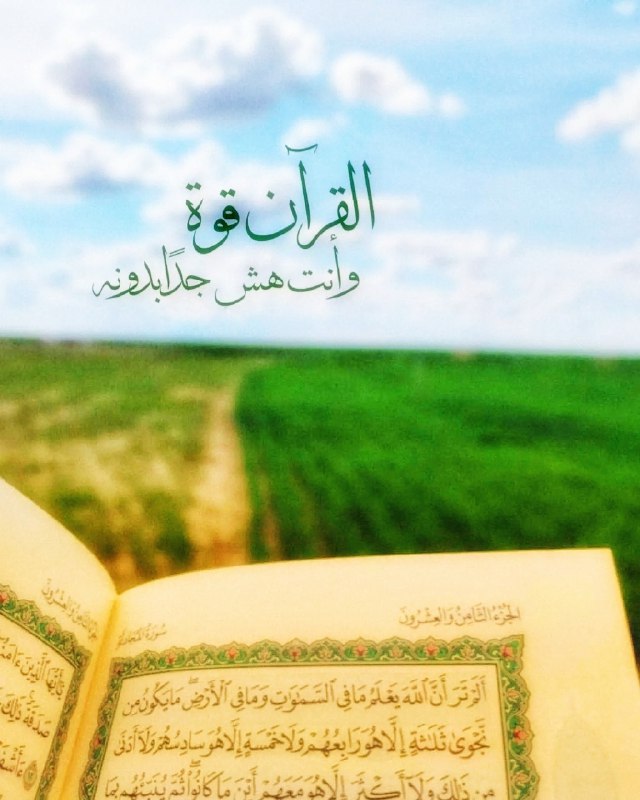 القرآن قوة
وأنت هش جدًا بدونه
الجزء الثامن والعشرون
سورة المجادلة
أَلَمْ تَرَ أَنَّ ٱللَّهَ يَعْلَمُ مَا فِى ٱلسَّمَٰوَٰتِ وَمَا فِى ٱلْأَرْضِ ۖ مَا يَكُونُ مِن
نَّجْوَىٰ ثَلَٰثَةٍ إِلَّا هُوَ رَابِعُهُمْ وَلَا خَمْسَةٍ إِلَّا هُوَ سَادِسُهُمْ وَلَآ أَدْنَىٰ
مِن ذَٰلِكَ وَلَآ أَكْثَرَ إِلَّا هُوَ مَعَهُمْ أَيْنَ مَا كَانُوا۟ ۖ ثُمَّ يُنَبِّئُهُم بِمَا